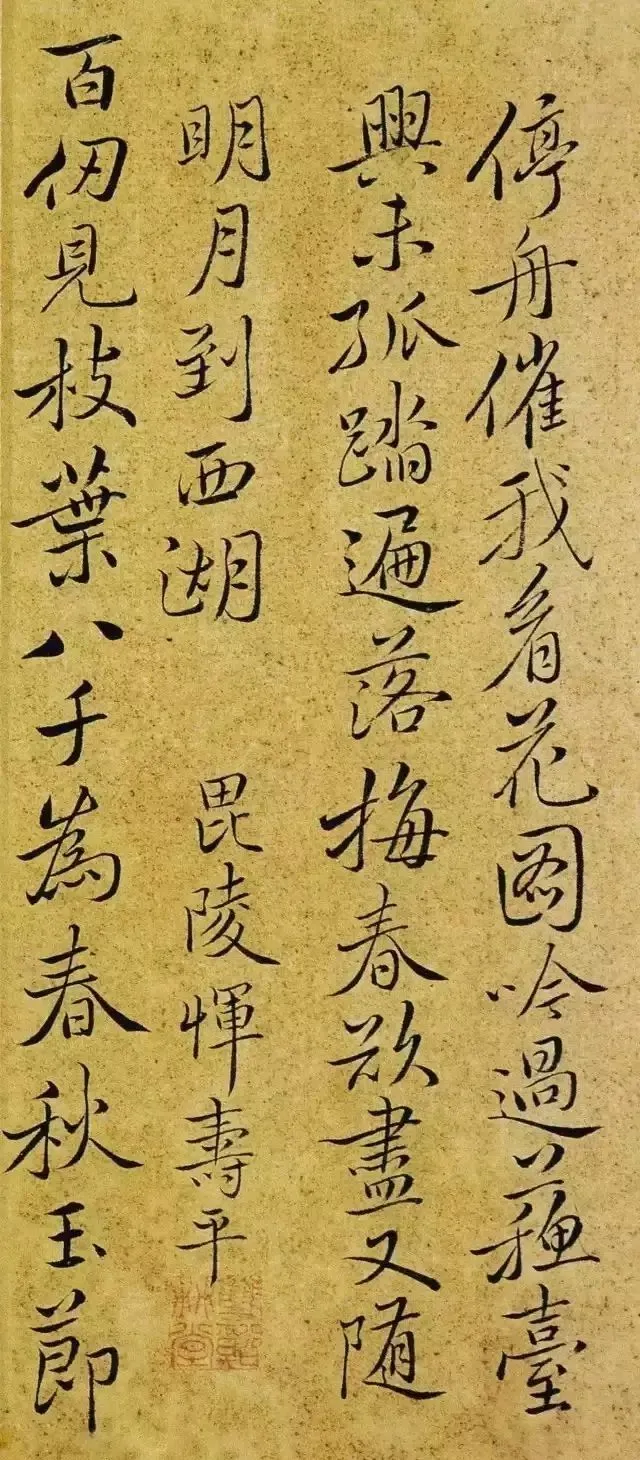 停舟催我看花圖吟過蘓臺
興未孤踏遍落梅春欲盡又随
明月到西湖
毘陵惲壽平
百仞見枝葉八千為春秋玉節